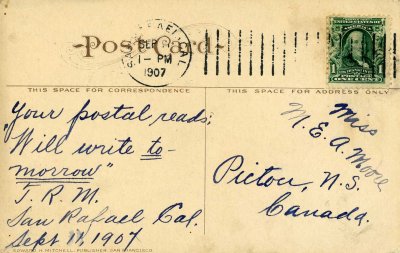 Post Card
SEP
1 - PM
1907
THIS SPACE FOR CORRESPONDENCE
THIS SPACE FOR ADDRESS ONLY
"Your postal reads:
Will write to-
morrow"
F. R. M.
San Rafael Cal.
Sept 11, 1907
EDWARD H. MITCHELL, PUBLISHER, SAN FRANCISCO
Miss
M. E. A. Moore
Pictou, N.S.
Canada.
1